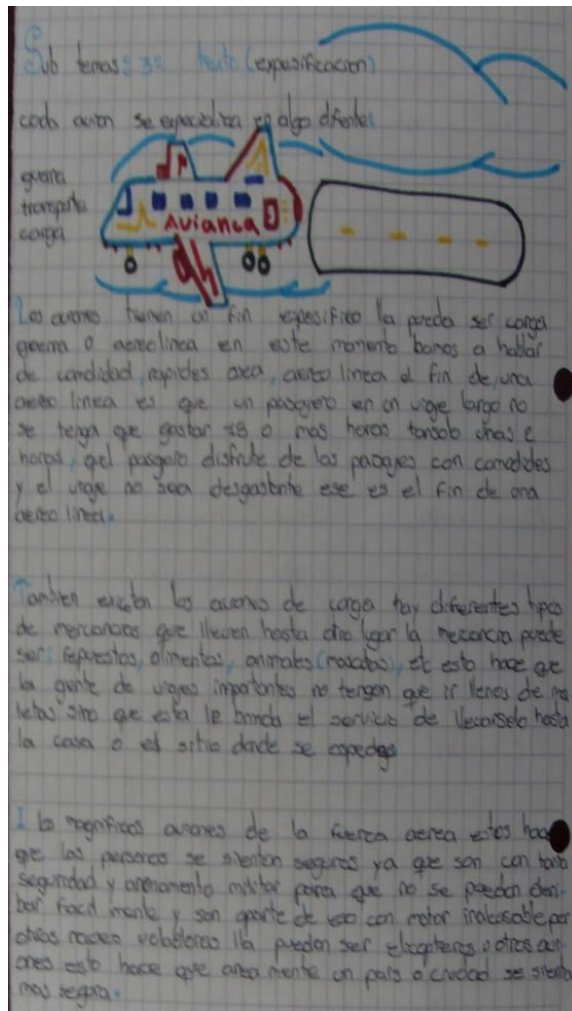 Sub temas: 3= texto (exposificacion)
cada avion se especializa en algo difente:
guerra
transporte
carga
Avianca
Los aviones tienen un fin espesifico lla pueda ser carga
guerra o aereolinea en este momento bamos a hablar
de comdidad, rapides osea, aereo linea el fin de una
aereo linea es que un pasagero en un viage largo no
se tenga que gastar 78 o mas horas tansolo unas
horas, qel pasgero disfrute de los pasages con comodides
y el viage no sea desgastante ese es el fin de una
aereo linea.
Tambien existen los aviones de carga hay diferentes tipos
de mercancias que lleven hasta otro lugar la mercancia puede
ser: repuestos, alimentos, animales (mascotas), etc esto hace que
la gente de viajes importantes no tengan que ir llenos de ma
letas sino que esta le brinda el servicio de llevarselo hasta
la casa o el sitio donde se ospedge
I lo magnificos aviones de la fuerca aerea estos hace
qe las personas se sientan seguras ya que son con tanta
seguridad y armamento militar para que no se puedan derri-
bar facil mente y son aparte de eso con motor inalcasable por
otras naves voladoras lla puedan ser elicopteros o otros avi-
ones esto hace que area mente un pais o ciudad se sienta
mas segura.